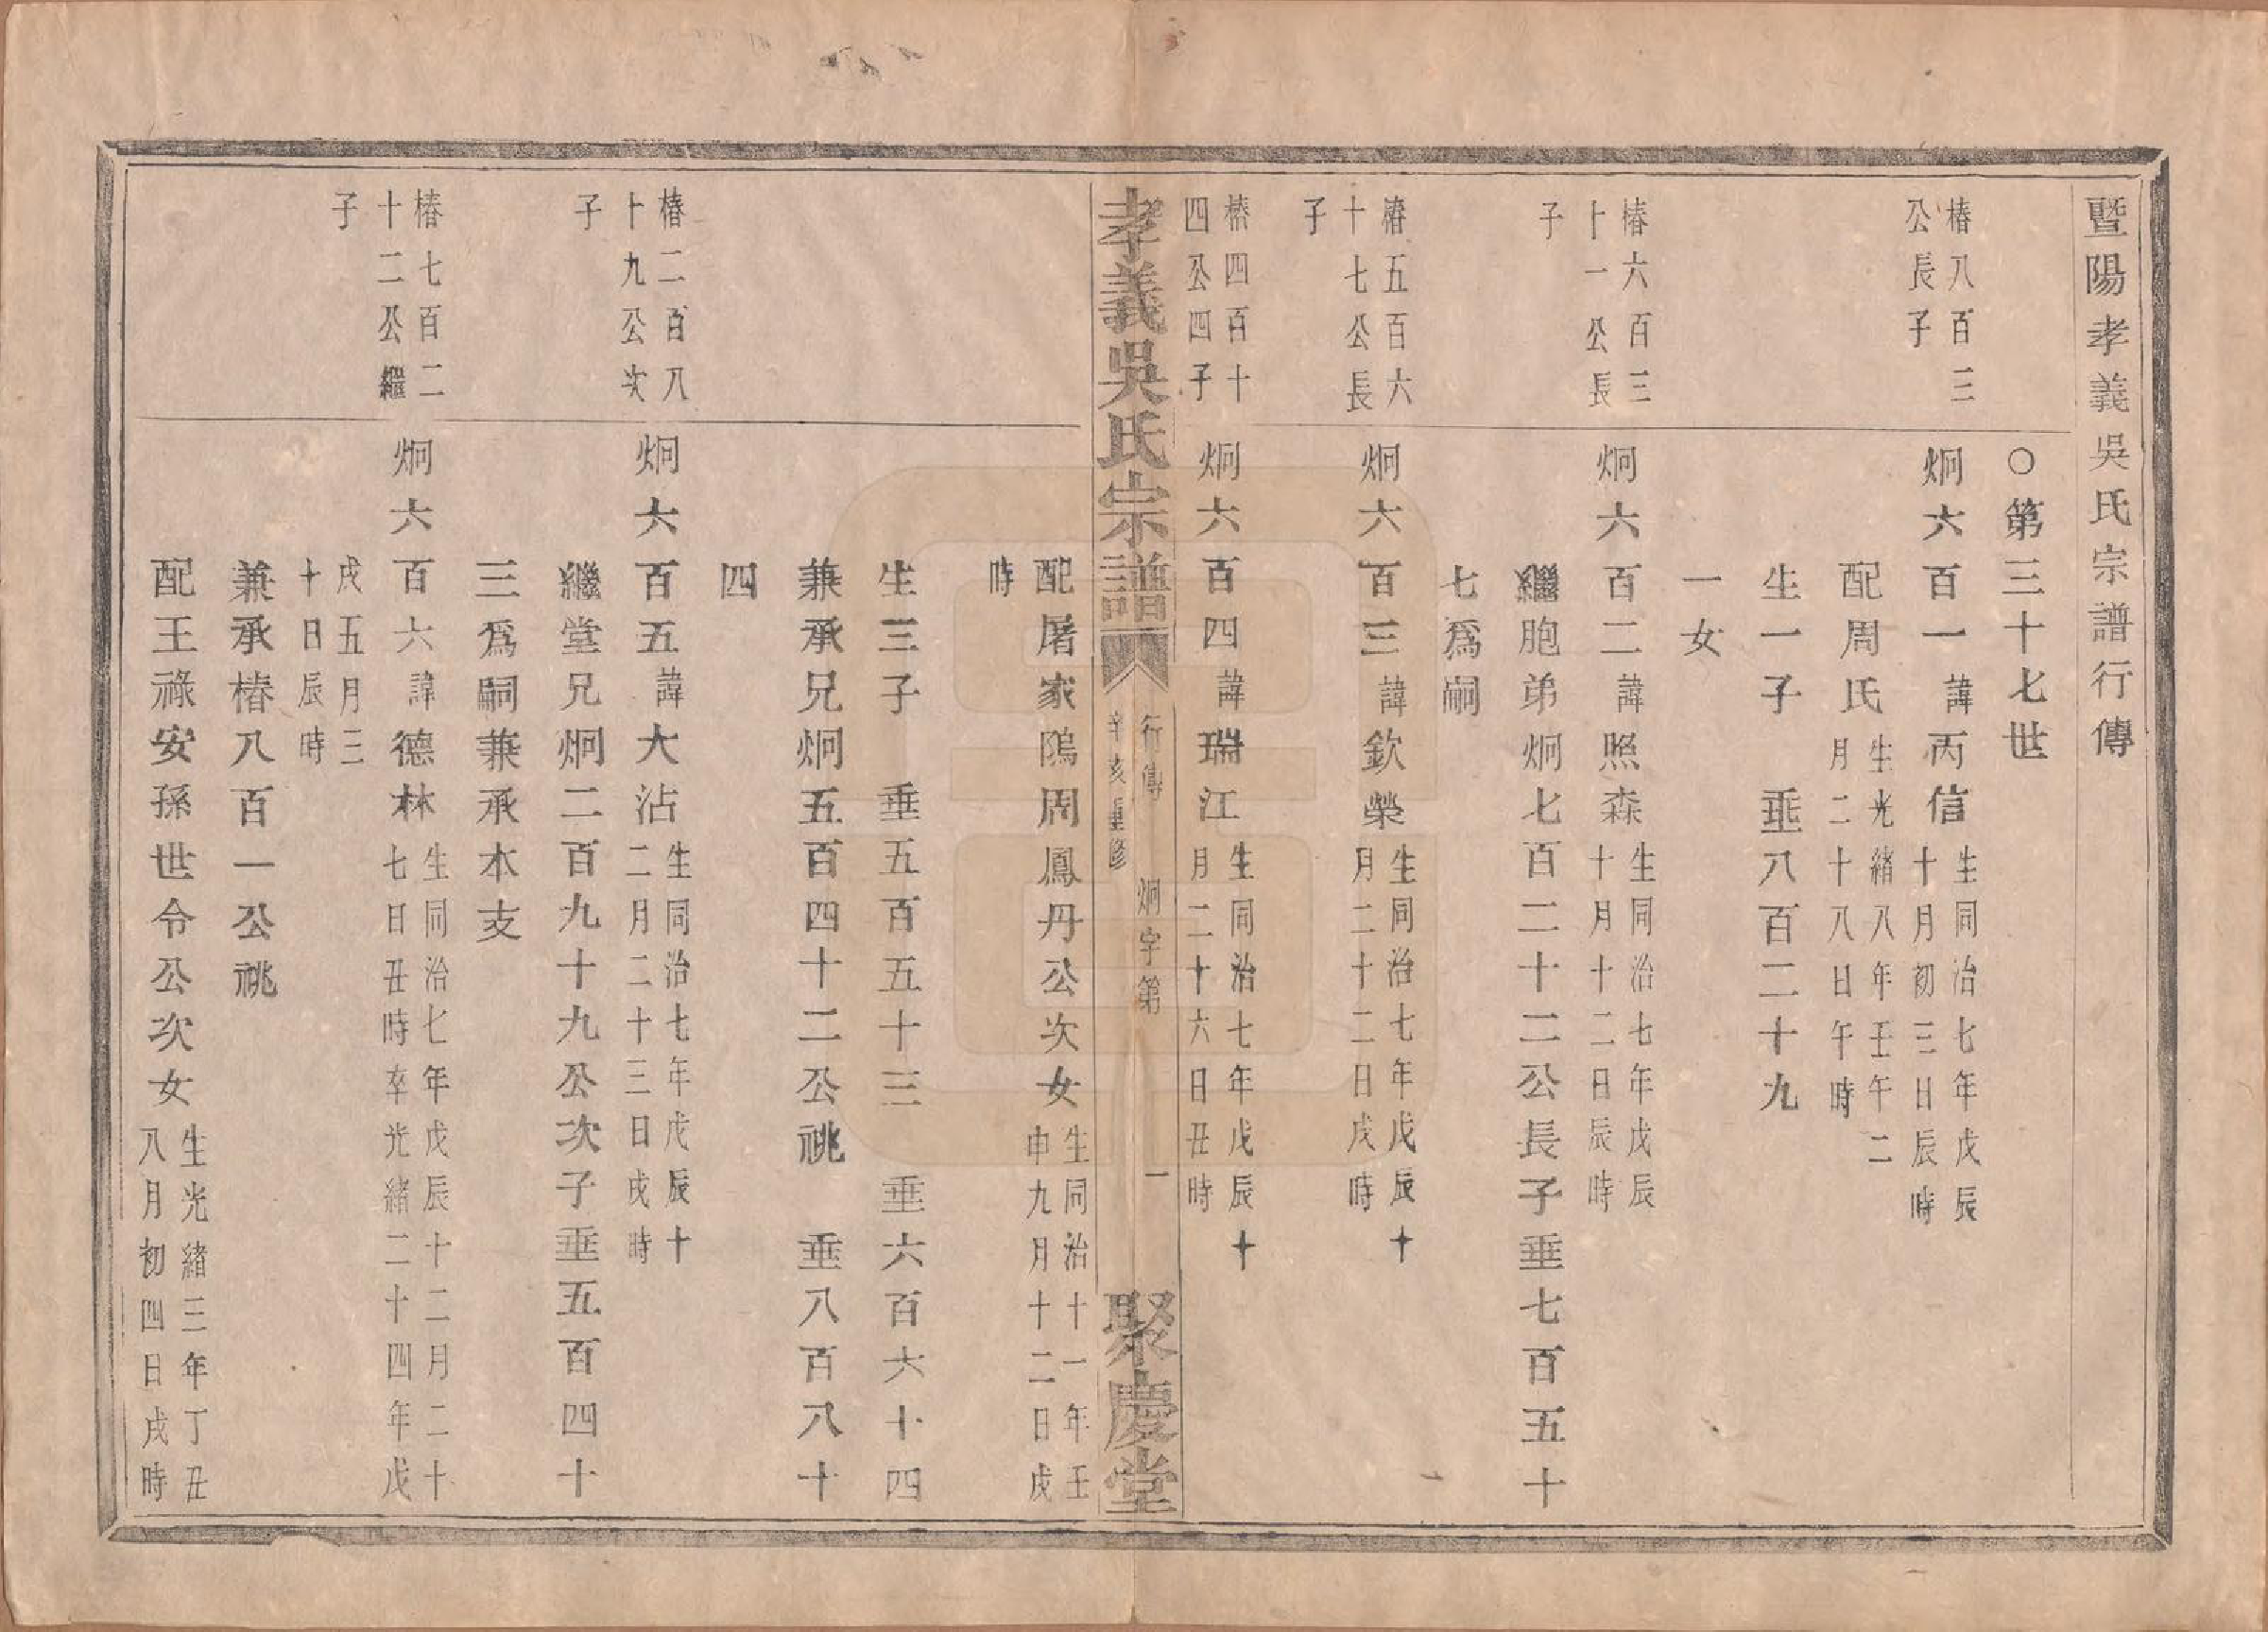 暨陽孝義吳氏宗譜行傳
○第三十七世
椿八百三
公長子
炯六百一諱丙信
生同治七年戊辰
十月初三日辰時
配周氏
生光緒八年壬午二
月二十八日午時
生一子　垂八百二十九
一女
椿六百三
十一公長
子
炯六百二諱照森
生同治七年戊辰
十月十二日辰時
繼胞弟炯七百二十二公長子垂七百五十
七爲嗣
椿五百六
十七公長
子
炯六百三諱欽榮
生同治七年戊辰十
月二十二日戌時
椿四百十
四公四子
炯六百四諱瑞江
生同治七年戊辰十
月二十六日丑時
孝義吳氏宗譜
行傳　炯字第　一
辛亥重修
聚慶堂
配屠家隖周鳳丹公次女
生同治十一年壬
申九月十二日戌
時
生三子　垂五百五十三　垂六百六十四
兼承兄炯五百四十二公祧　垂八百八十
四
椿二百八
十九公次
子
炯六百五諱大沾
生同治七年戊辰十
二月二十三日戌時
繼堂兄炯二百九十九公次子垂五百四十
三爲嗣兼承本支
椿七百二
十二公繼
子
炯六百六諱德林
生同治七年戊辰十二月二十
七日丑時卒光緒二十四年戊
戌五月三
十日辰時
兼承椿八百一公祧
配王祿安孫世令公次女
生光緒三年丁丑
八月初四日戌時